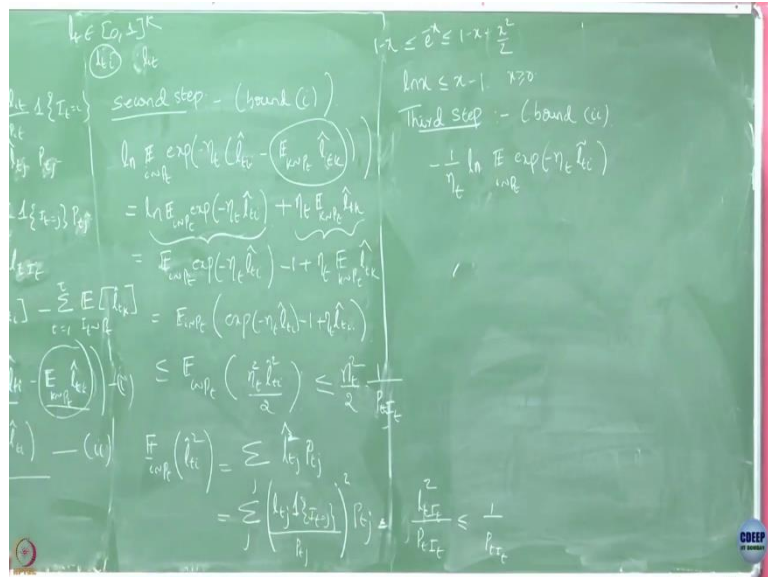 l_t ∈ [0,1]^K
l_{ti} l_{it}
l_{it} 1{I_t=i}
P_{it}
P_{tj}
1{I_t=j} P_{tj}
l_{tI_t}
] - ∑_{t=1}^{τ} E_{I_t∼P_t}[l_{tk}]
- E_{k∼P_t} \hat{l}_{tk})) - (i)
) — (ii)
second step - (bound (i))
ln E_{i∼P_t} exp(-η_t (\hat{l}_{ti} - E_{k∼P_t} \hat{l}_{tk}))
= ln E_{i∼P_t} exp(-η_t \hat{l}_{ti}) + η_t E_{k∼P_t} \hat{l}_{tk}
= E_{i∼P_t} exp(-η_t \hat{l}_{ti}) - 1 + η_t E_{k∼P_t} \hat{l}_{tk}
= E_{i∼P_t} (exp(-η_t \hat{l}_{ti}) - 1 + η_t \hat{l}_{ti})
≤ E_{i∼P_t} (η_t^2 \hat{l}_{ti}^2 / 2) ≤ η_t^2 / 2 1 / P_{tI_t}
E_{i∼P_t} (\hat{l}_{ti}^2) = ∑_j \hat{l}_{tj} P_{tj}
= ∑_j (l_{tj} 1{I_t=j} / P_{tj})^2 P_{tj} = l_{tI_t}^2 / P_{tI_t} ≤ 1 / P_{tI_t}
1-x ≤ e^{-x} ≤ 1-x+x^2/2
ln x ≤ x-1 x≥0
Third step :- (bound (ii)
-1/η_t ln E_{i∼P_t} exp(-η_t \tilde{l}_{ti})
NPTEL
CDEEP
IIT BOMBAY